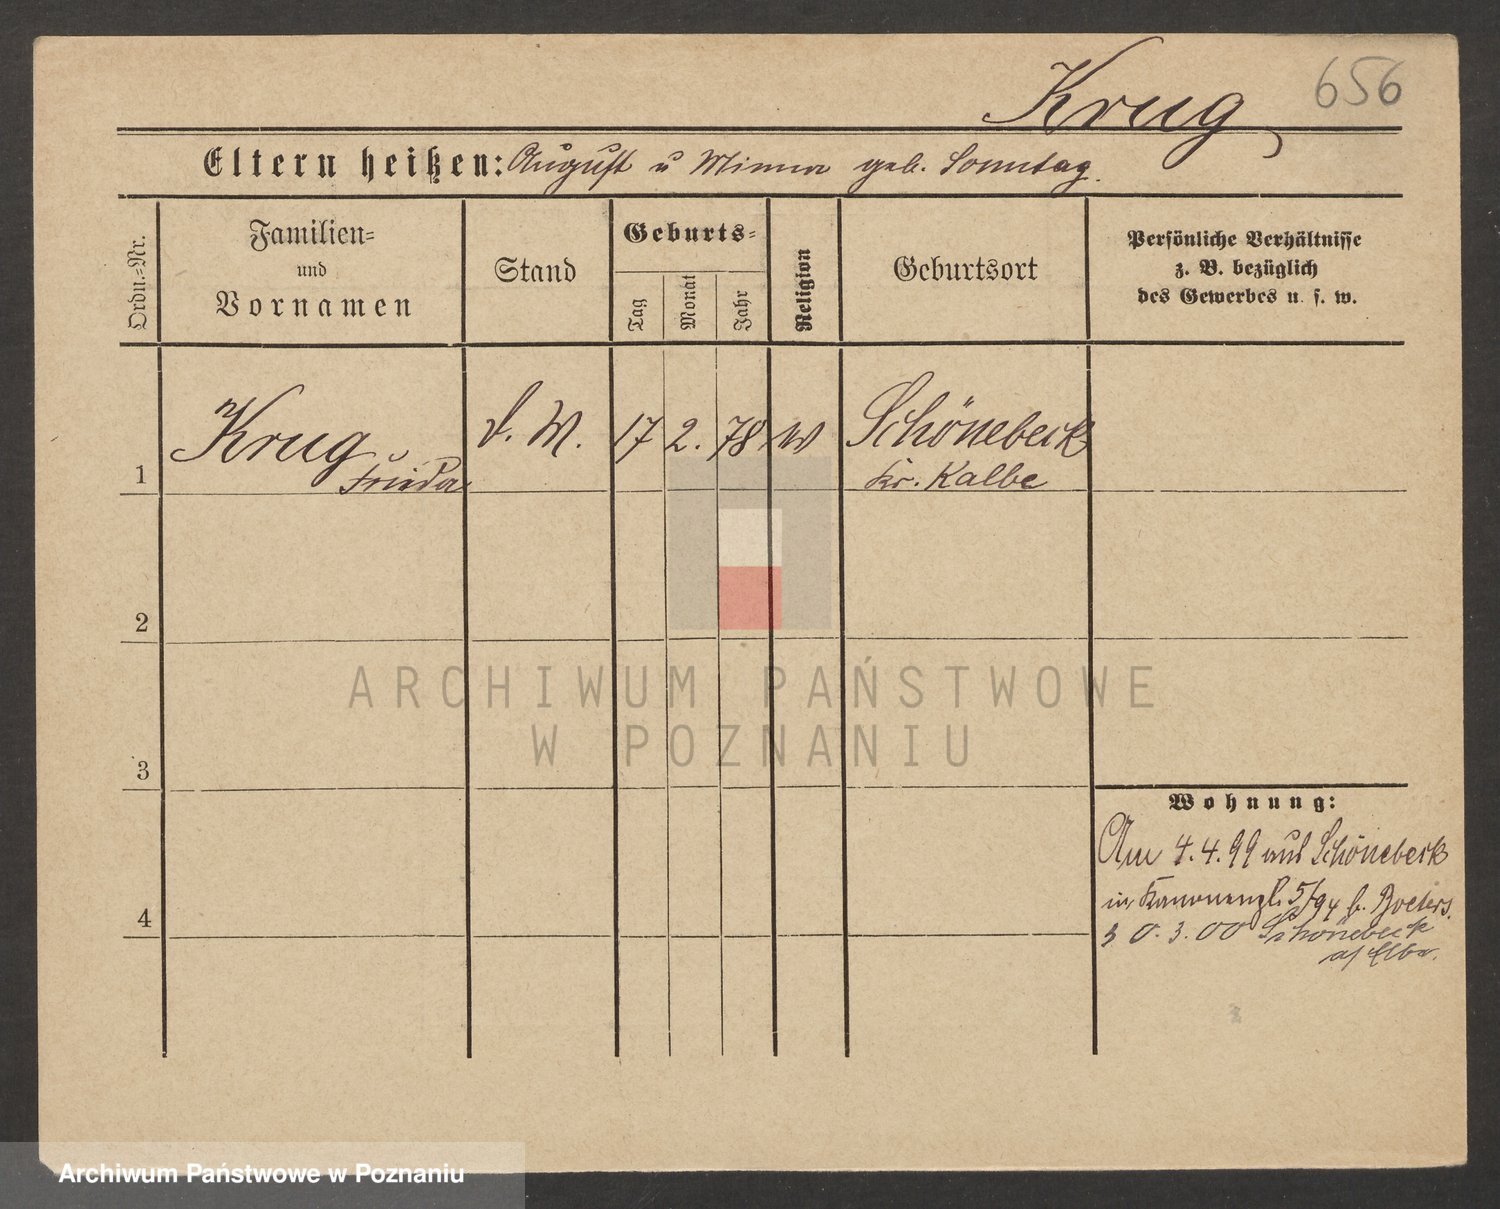 Krug 656
Eltern heißen: August u Minna geb. Sonntag.
Ordn.-Nr.
Familien-
und
Vornamen
Stand
Geburts-
Tag
Monat
Jahr
Religion
Geburtsort
Persönliche Verhältnisse
z. B. bezüglich
des Gewerbes u. s. w.
1 Krug d. M. 17 2. 78 Schönebeck
Frieda Kr. Kalbe
2
3
4
Wohnung:
Am 4.4.99 aus Schönebeck
in Kanonenpl. 5/94 b. Boeters.
30.3.00 Schönebeck
a/ Elbe.
ARCHIWUM PAŃSTWOWE
W POZNANIU
Archiwum Państwowe w Poznaniu